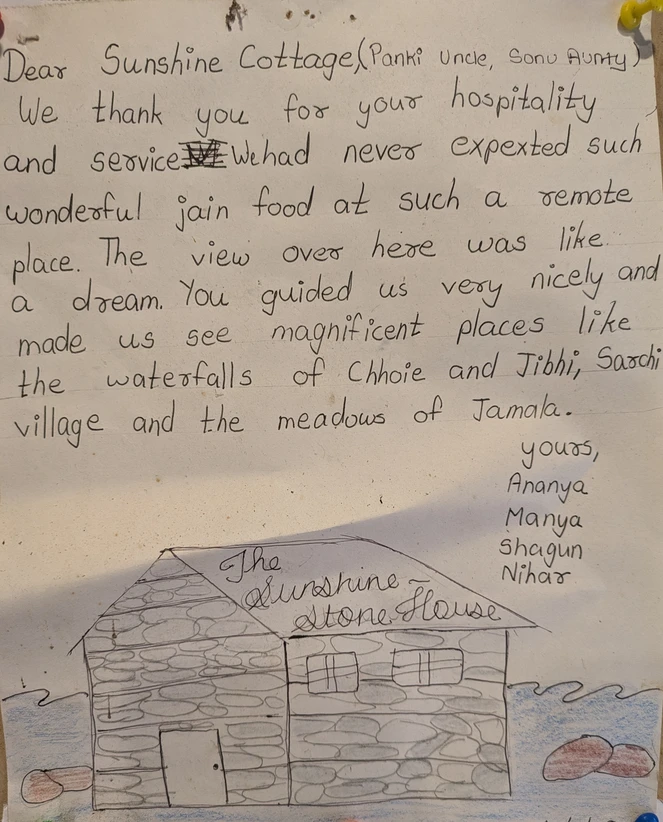 Dear Sunshine Cottage,(Panki Uncle, Sonu Aunty)
We thank you for your hospitality
and service We had never expexted such
wonderful jain food at such a remote
place. The view over here was like
a dream. You guided us very nicely and
made us see magnificent places like
the waterfalls of Chhoie and Jibhi, Sarchi
village and the meadows of Jamala.
yours,
Ananya
Manya
Shagun
Nihar
The
Sunshine -
Stone House